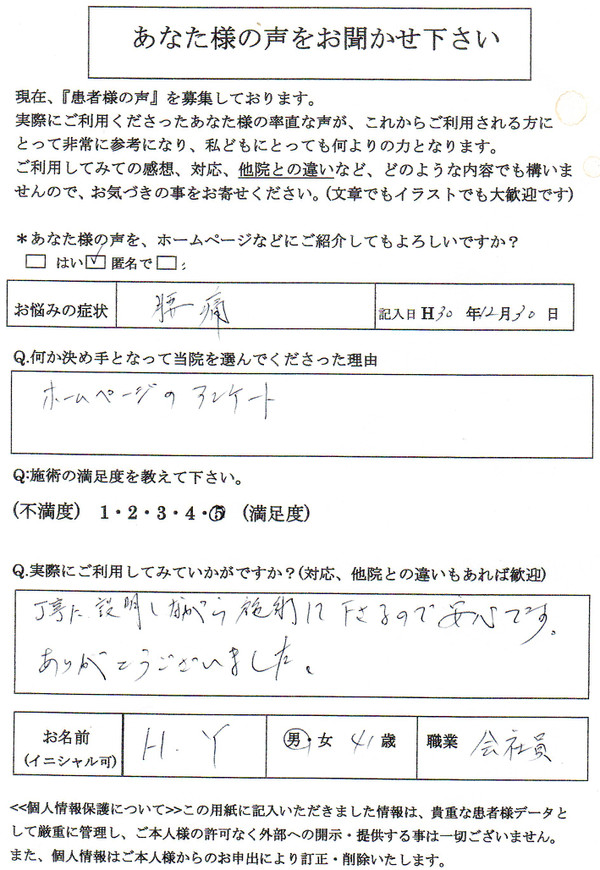 あなた様の声をお聞かせ下さい
現在、『患者様の声』を募集しております。
実際にご利用くださったあなた様の率直な声が、これからご利用される方に
とって非常に参考になり、私どもにとっても何よりの力となります。
ご利用してみての感想、対応、他院との違いなど、どのような内容でも構いま
せんので、お気づきの事をお寄せください。(文章でもイラストでも大歓迎です)
＊あなた様の声を、ホームページなどにご紹介してもよろしいですか？
□ はい ☑ 匿名で □
お悩みの症状 腰痛 記入日 H30 年12月30 日
Q.何か決め手となって当院を選んでくださった理由
ホームページのアンケート
Q:施術の満足度を教えて下さい。
(不満度) 1・2・3・4・⑤ (満足度)
Q.実際にご利用してみていかがですか？(対応、他院との違いもあれば歓迎)
丁寧に説明しながら施術して下さるので安心です。
ありがとうございました。
お名前 (イニシャル可) H.Y 男・女 41歳 職業 会社員
<<個人情報保護について>>この用紙に記入いただきました情報は、貴重な患者様データと
して厳重に管理し、ご本人様の許可なく外部への開示・提供する事は一切ございません。
また、個人情報はご本人様からのお申出により訂正・削除いたします。